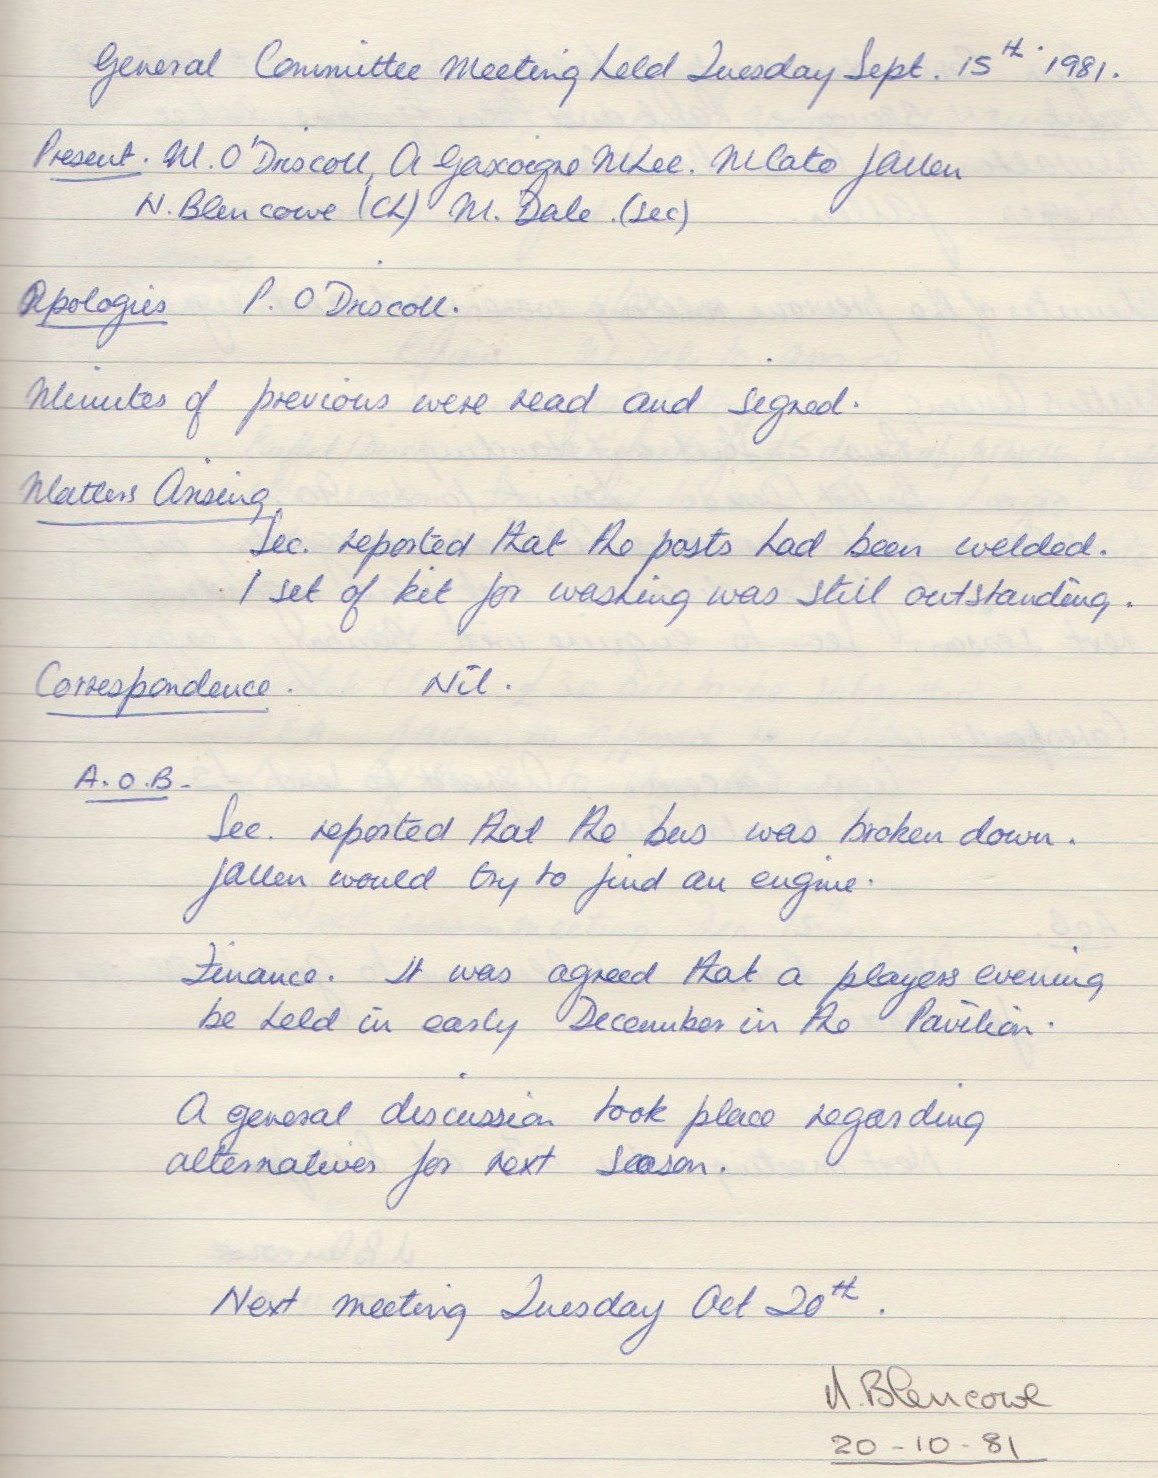 General Committee Meeting held Tuesday Sept. 15th 1981.
Present. M. O'Driscoll, A Gascoigne M Lee. M Cato J Allen
N. Blencowe (Ch) M. Dale (Sec)
Apologies P. O'Driscoll.
Minutes of previous were read and signed.
Matters Arising
Sec. reported that the posts had been welded.
1 set of kit for washing was still outstanding.
Correspondence. Nil.
A.O.B-
Sec. reported that the bus was broken down.
J Allen would try to find an engine.
Finance. It was agreed that a players evening
be held in early December in the Pavilion.
A general discussion took place regarding
alternatives for next season.
Next meeting Tuesday Oct 20th.
N. Blencowe
20-10-81